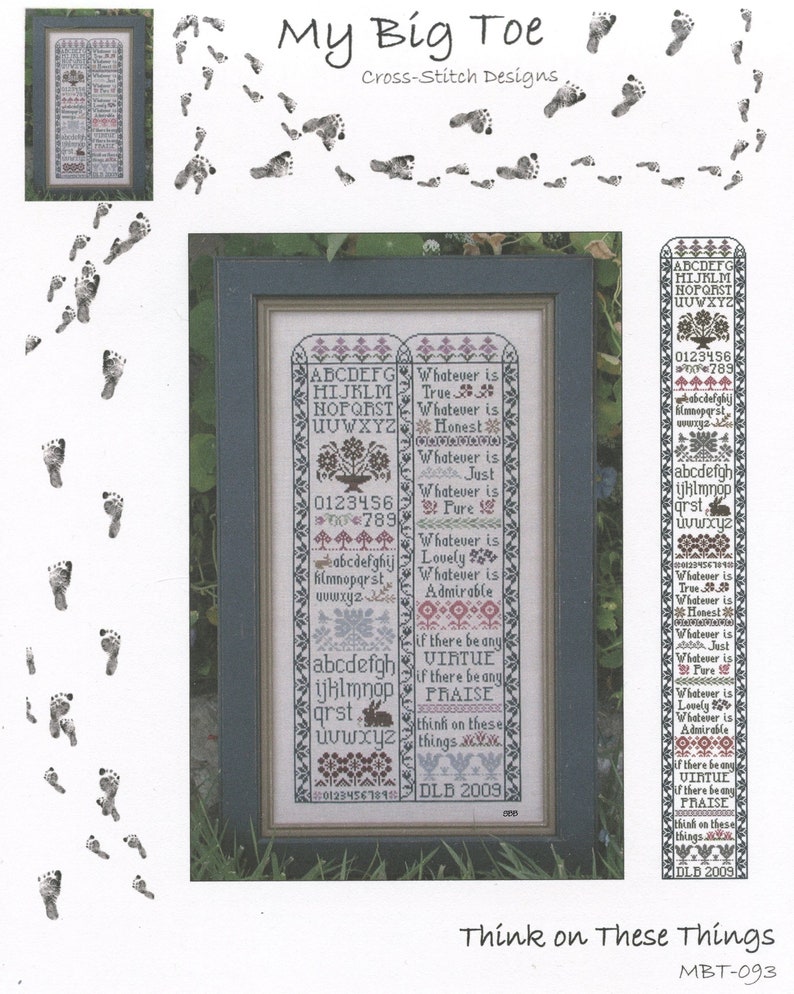 My Big Toe
Cross-Stitch Designs
ABCDEFG
HIJKLM
NOPQRST
UVWXYZ
0123456
789
abcdefghij
klmnopqrst
uvwxyz
abcdefgh
ijklmnop
qrst
uvwxyz
0123456789
Whatever is
True
Whatever is
Honest
Whatever is
Just
Whatever is
Pure
Whatever is
Lovely
Whatever is
Admirable
if there be any
VIRTUE
if there be any
PRAISE
think on these
things
DLB 2009
SBB
ABCDEFG
HIJKLM
NOPQRST
UVWXYZ
0123456
789
abcdefghij
klmnopqrst
uvwxyz
abcdefgh
ijklmnop
qrst
uvwxyz
0123456789
Whatever is
True
Whatever is
Honest
Whatever is
Just
Whatever is
Pure
Whatever is
Lovely
Whatever is
Admirable
if there be any
VIRTUE
if there be any
PRAISE
think on these
things
DLB 2009
Think on These Things
MBT-093